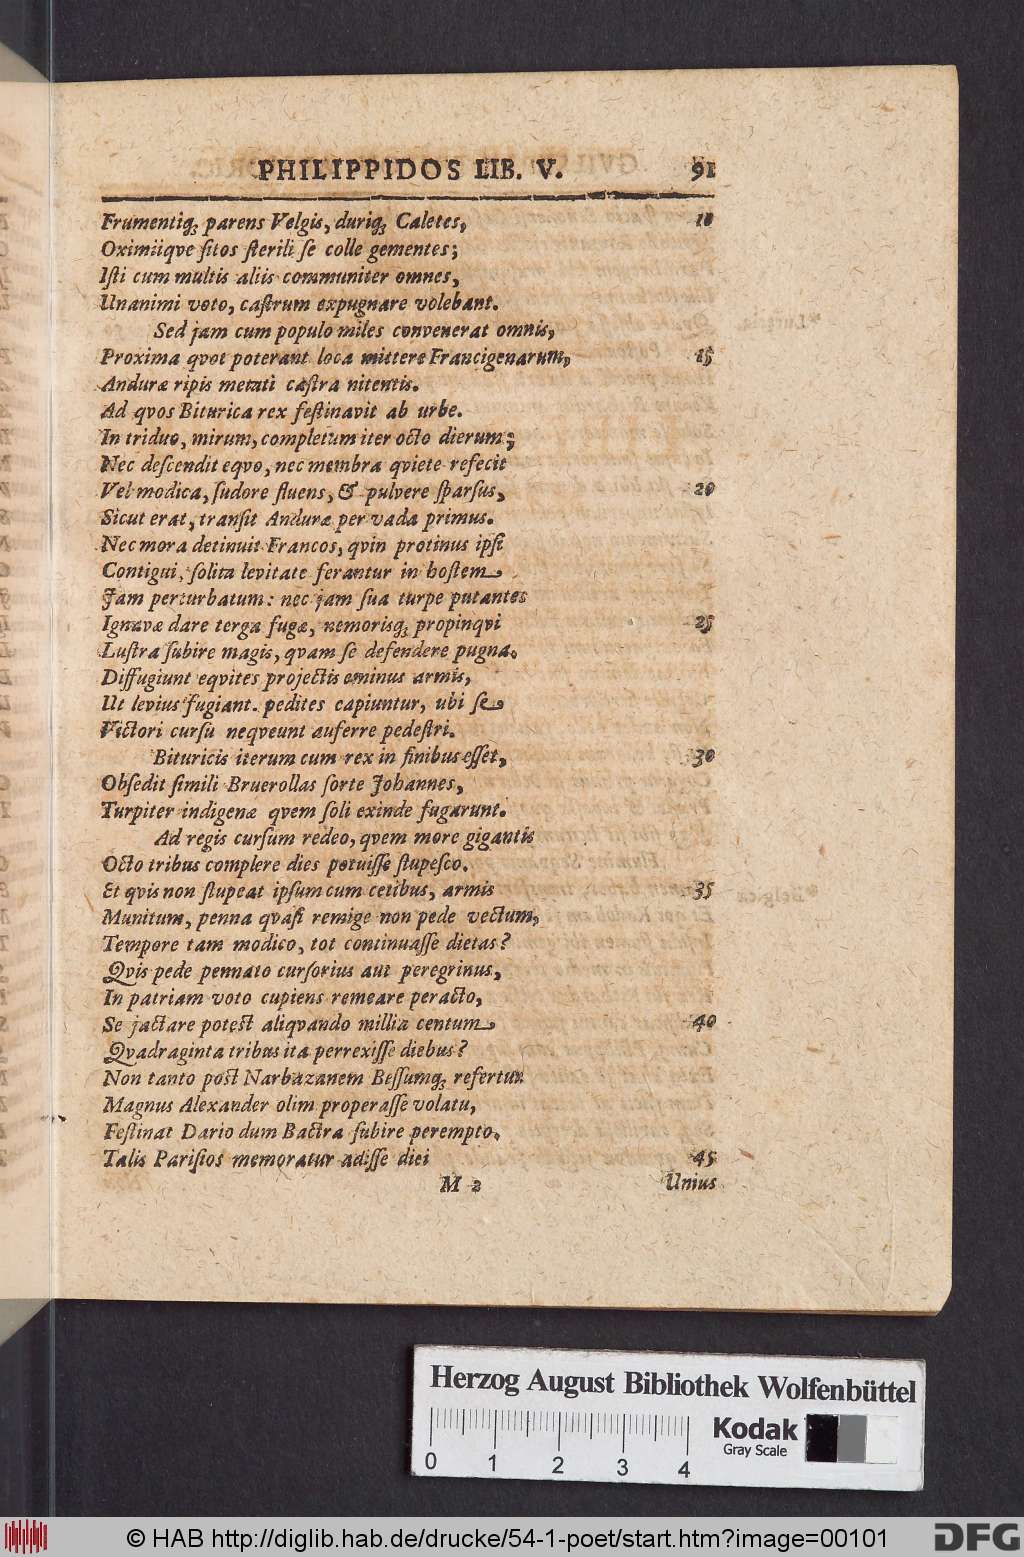 PHILIPPIDOS LIB. V. 91
Frumentiq; parens Velgis, duriq; Caletes, 10
Oximiiqve sitos sterili se colle gementes;
Isti cum multis aliis communiter omnes,
Unanimi voto, castrum expugnare volebant.
Sed jam cum populo miles convenerat omnis,
Proxima qvot poterant loca mittere Francigenarum, 15
Anduræ ripis metati castra nitentis.
Ad qvos Biturica rex festinavit ab urbe.
In triduo, mirum, completum iter octo dierum;
Nec descendit eqvo, nec membra qviete refecit
Vel modica, sudore fluens, & pulvere sparsus, 20
Sicut erat, transit Anduræ per vada primus.
Nec mora detinuit Francos, qvin protinus ipsi
Contigui, solita levitate ferantur in hostem
Jam perturbatum: nec jam sua turpe putantes
Ignavæ dare terga fugæ, nemorisq; propinqvi 25
Lustra subire magis, qvam se defendere pugna.
Diffugiunt eqvites projectis eminus armis,
Ut levius fugiant. pedites capiuntur, ubi se
Victori cursu neqveunt auferre pedestri.
Bituricis iterum cum rex in finibus esset, 30
Obsedit simili Bruerollas sorte Johannes,
Turpiter indigenæ qvem soli exinde fugarunt.
Ad regis cursum redeo, qvem more gigantis
Octo tribus complere dies potuisse stupesco.
Et qvis non stupeat ipsum cum cetibus, armis 35
Munitum, penna qvasi remige non pede vectum,
Tempore tam modico, tot continuasse dietas?
Qvis pede pennato cursorius aut peregrinus,
In patriam voto cupiens remeare peracto,
Se jactare potest aliqvando millia centum 40
Qvadraginta tribus ita perrexisse diebus?
Non tanto post Narbazanem Bessumq; refertur
Magnus Alexander olim properasse volatu,
Festinat Dario dum Bactra subire perempto.
Talis Parisios memoratur adisse diei 45
M 2 Unius
Herzog August Bibliothek Wolfenbüttel
0 1 2 3 4
Kodak
Gray Scale
© HAB http://diglib.hab.de/drucke/54-1-poet/start.htm?image=00101
DFG